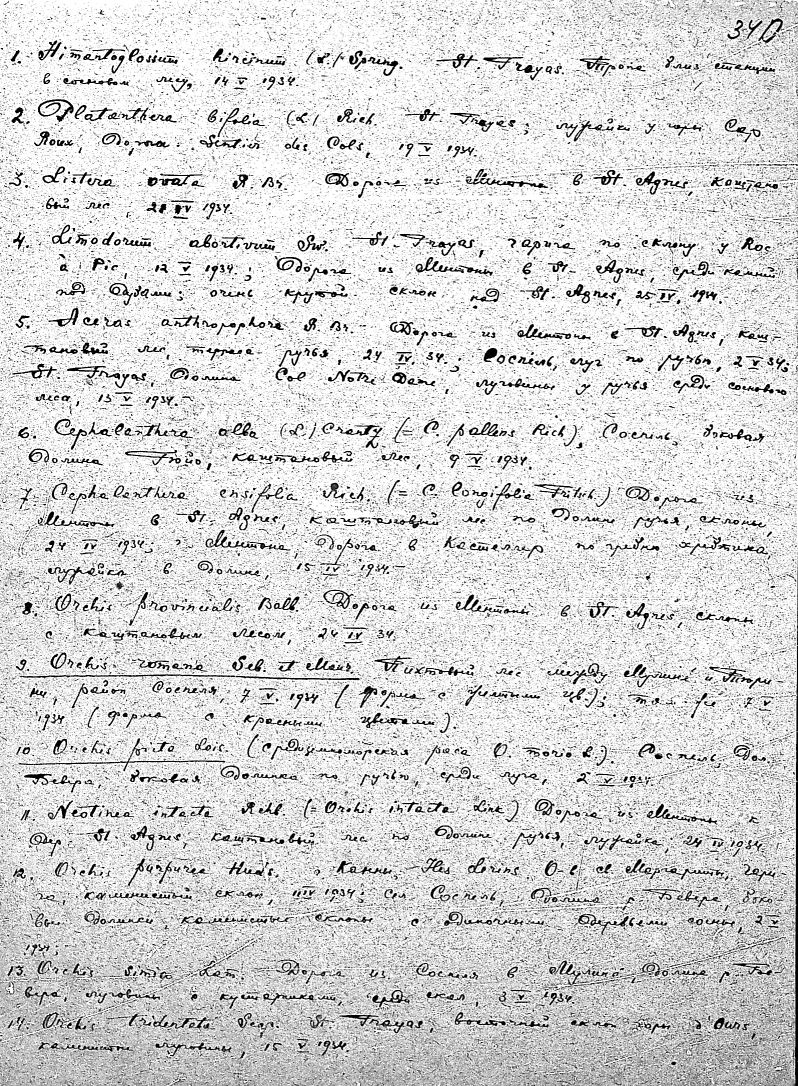 34D
1. Himantoglossum hircinum (L.) Spring. St. Trayas. Тропа близ станции
в сосновом лесу, 14 V 1934.
2. Platanthera bifolia (L.) Rich. St. Trayas; лужайки у горы Cap
Roux, Sentier des Cols, 19 V 1934.
3. Listera ovata R. Br. Дорога из Ментоны в St. Agnes, каштано-
вый лес, 1934.
4. Limodorum abortivum Sw. St. Trayas, гарига по склону у Roc
à Pic, 12 V 1934; Дорога из Ментоны в St. Agnes, среди камней
под дубами; очень крутой склон над St. Agnes, 25 IV, 1934.
5. Aceras anthropophora R. Br. Дорога из Ментоны в St. Agnes, каш-
тановый лес, терраса ручья, 24 IV. 34.; Соспель, луг по ручью, 2 V 34;
St. Trayas, Долина Col Notre Dame, луговины у ручья среди соснового
леса, 15 V 1934.-
6. Cephalanthera alba (L.) Crantz (= C. pallens Rich), Соспель, боковая
долина Гюйо, каштановый лес, 9 V 1934.
7. Cephalanthera ensifolia Rich. (= C. longifolia Fritsh.) Дорога из
Ментоны в St. Agnes, каштановый лес по долине ручья, склоны,
24 IV 1934; Ментона, дорога в Кастеллар по гребню хребтика,
лужайка в долине, 15 IV 1934.-
8. Orchis provincialis Balb. Дорога из Ментоны в St. Agnes, склоны
с каштановым лесом, 24 IV 34.
9. Orchis romana Seb. et Maur. Пихтовый лес между Мулинé и Тюри-
ни, район Соспеля, 7 V. 1934 (форма с желтыми цв.); там же 7 V
1934 (форма с красными цветами).
10. Orchis picta Lois. (средиземноморская раса O. morio L.). Соспель, Дол.
Бевера, боковая долинка по ручью, среди луга, 2 V 1934.
11. Neotinea intacta Rchb. (= Orchis intacta Link) Дорога из Ментоны к
дер. St. Agnes, каштановый лес по долине ручья, лужайка, 24 IV 1934.
12. Orchis purpurea Huds. г. Канны, Iles Lerins, О-в св. Маргариты, гари-
га, каменистый склон, IV 1934; Соспель, долина р. Бевера, боко-
вые долинки, каменистые склоны с одиночными деревьями сосны, 2 V
1934;
13. Orchis simia Lam. Дорога из Соспеля в Мулинé, долина р. Бе-
вера, луговины с кустарниками, среди скал, 3 V 1934.
14. Orchis tridentata Scop. St. Trayas, восточный склон горы d'Ours,
каменистые луговины, 15 V 1934.